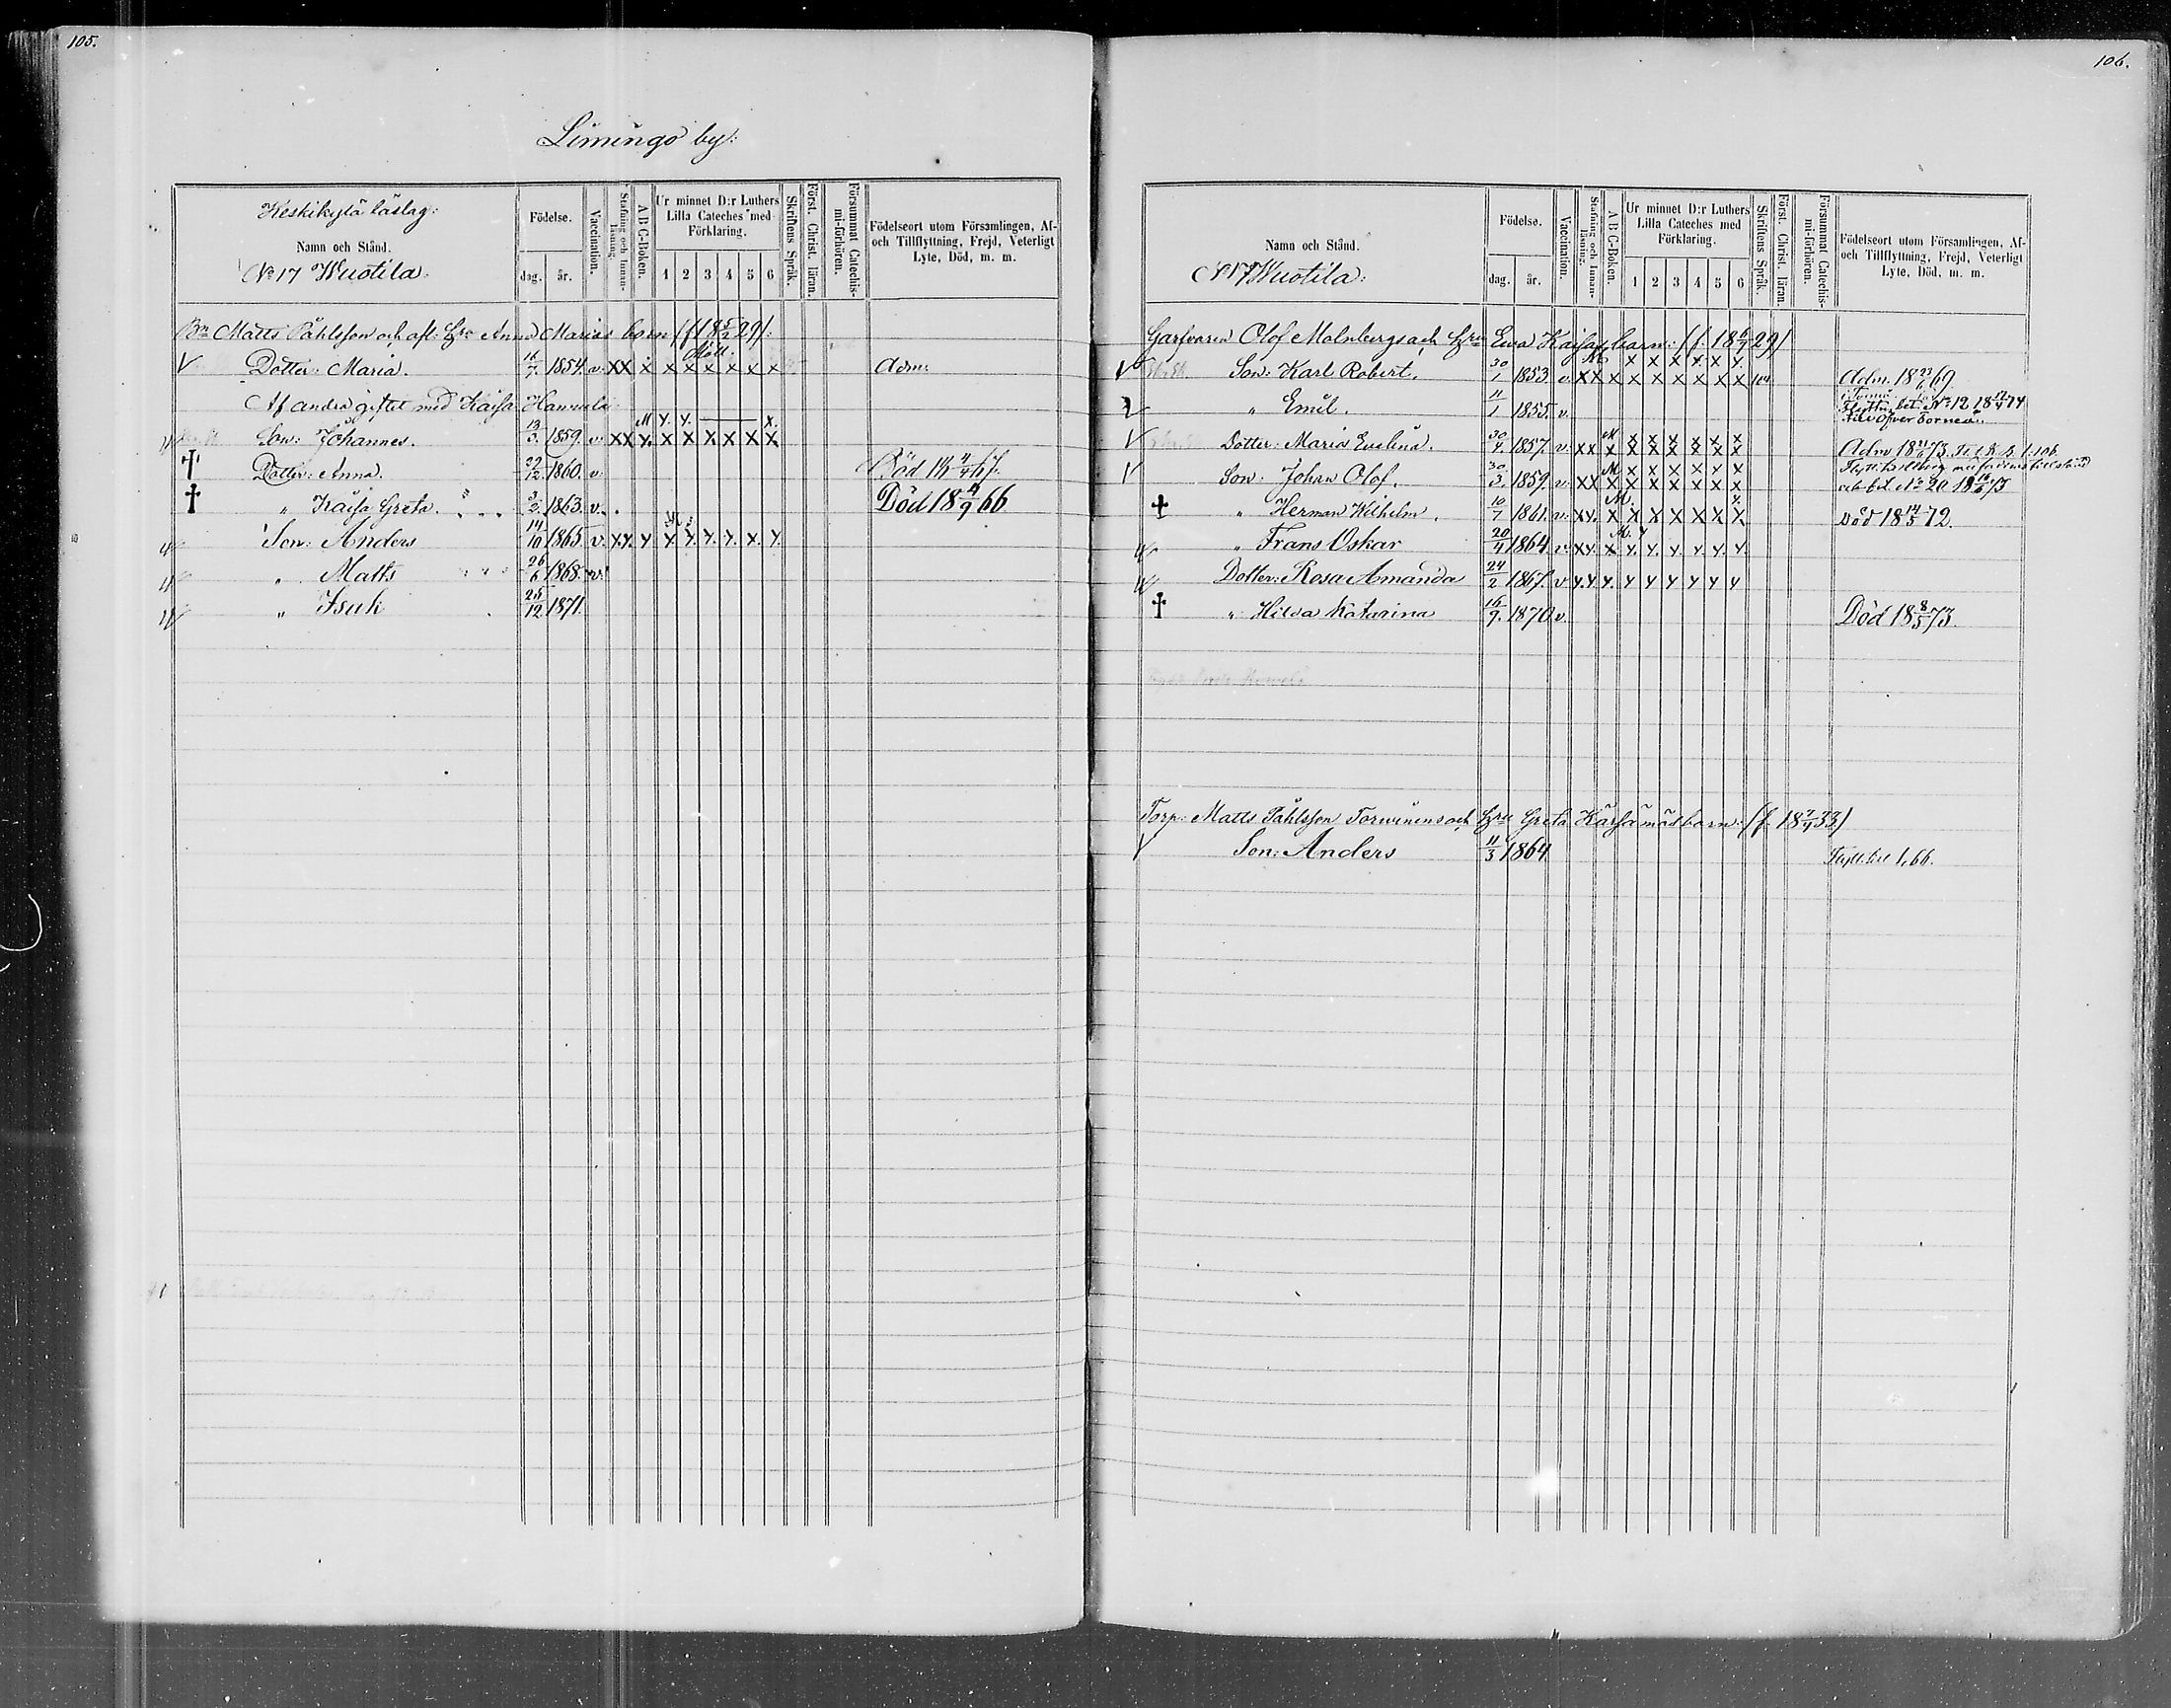 105.
Limingo by:
Keskikylä läslag:
Namn och Stånd.
No 17 Wuotila.
Födelse.
dag. år.
Vaccination.
Stafning och Innanläsning.
A B C-Boken.
Ur minnet D:r Luthers Lilla Cateches med Förklaring.
1 2 3 4 5 6
Skriftens Språk.
Först. Christ. läran.
Försummat Catechismi-förhören.
Födelseort utom Församlingen, Af- och Tillflyttning, Frejd, Veterligt Lyte, Död, m. m.
Matts Påhlsson och afl: Hru Anna Marias barn (f 18 5/2 29):
V Dotter: Maria. 16/7 1854. v. X X X X X X X X X Adm:
Af andra giftet med Kaisa Hannula:
M Y. Y. X.
Son: Johannes. 13/3 1859. v. X X Y. X X X X X X
† Dotter: Anna. 22/12 1860. v. Död
† " Kaisa Greta. 3/2 1863. v. Död 18 4/9 66
Son: Anders 14/10 1865 v. X. Y. Y Y. Y. Y. Y. X. Y.
" Matts 26/6 1868. v.
" Isak 25/12 1871.
106.
Namn och Stånd.
No 17 Wuotila:
Födelse.
dag. år.
Vaccination.
Stafning och Innanläsning.
A B C-Boken.
Ur minnet D:r Luthers Lilla Cateches med Förklaring.
1 2 3 4 5 6
Skriftens Språk.
Först. Christ. läran.
Försummat Catechismi-förhören.
Födelseort utom Församlingen, Af- och Tillflyttning, Frejd, Veterligt Lyte, Död, m. m.
Garfvaren Olof Malmbergs och Hru Ewa Kaisas barn: (f. 18 6/7 29)
V Son: Karl Robert. 30/1 1853 v. X X X X X X X X X Adm. 18 23/6 69
" Emil. 11/1 1855. v. bet. No 12 74
Till Öfver Torneå.
V Dotter: Maria Evelina. 30/4 1857. v. X X X X X X X X X Adm 73.
V Son: Johan Olof. 30/3. 1859. v. X X X X X X X X X bet. No 20
† " Herman Wilhelm. 10/7 1861. v. X Y. X X X X X X X Död 18 14/5 72.
" Frans Oskar 20/4 1864 v. X Y. X Y. Y. Y. Y. Y. Y.
Dotter: Rosa Amanda 24/2 1867. v Y. Y. Y. Y Y Y Y Y Y
† " Hilda Katarina 16/9. 1870 v. Död 18 8/5 73.
Torp: Matts Påhlsson Torwinens och Hru Greta barn: (f. 18 33)
V Son: Anders 11/3 1864 Flytt. till 1,66.